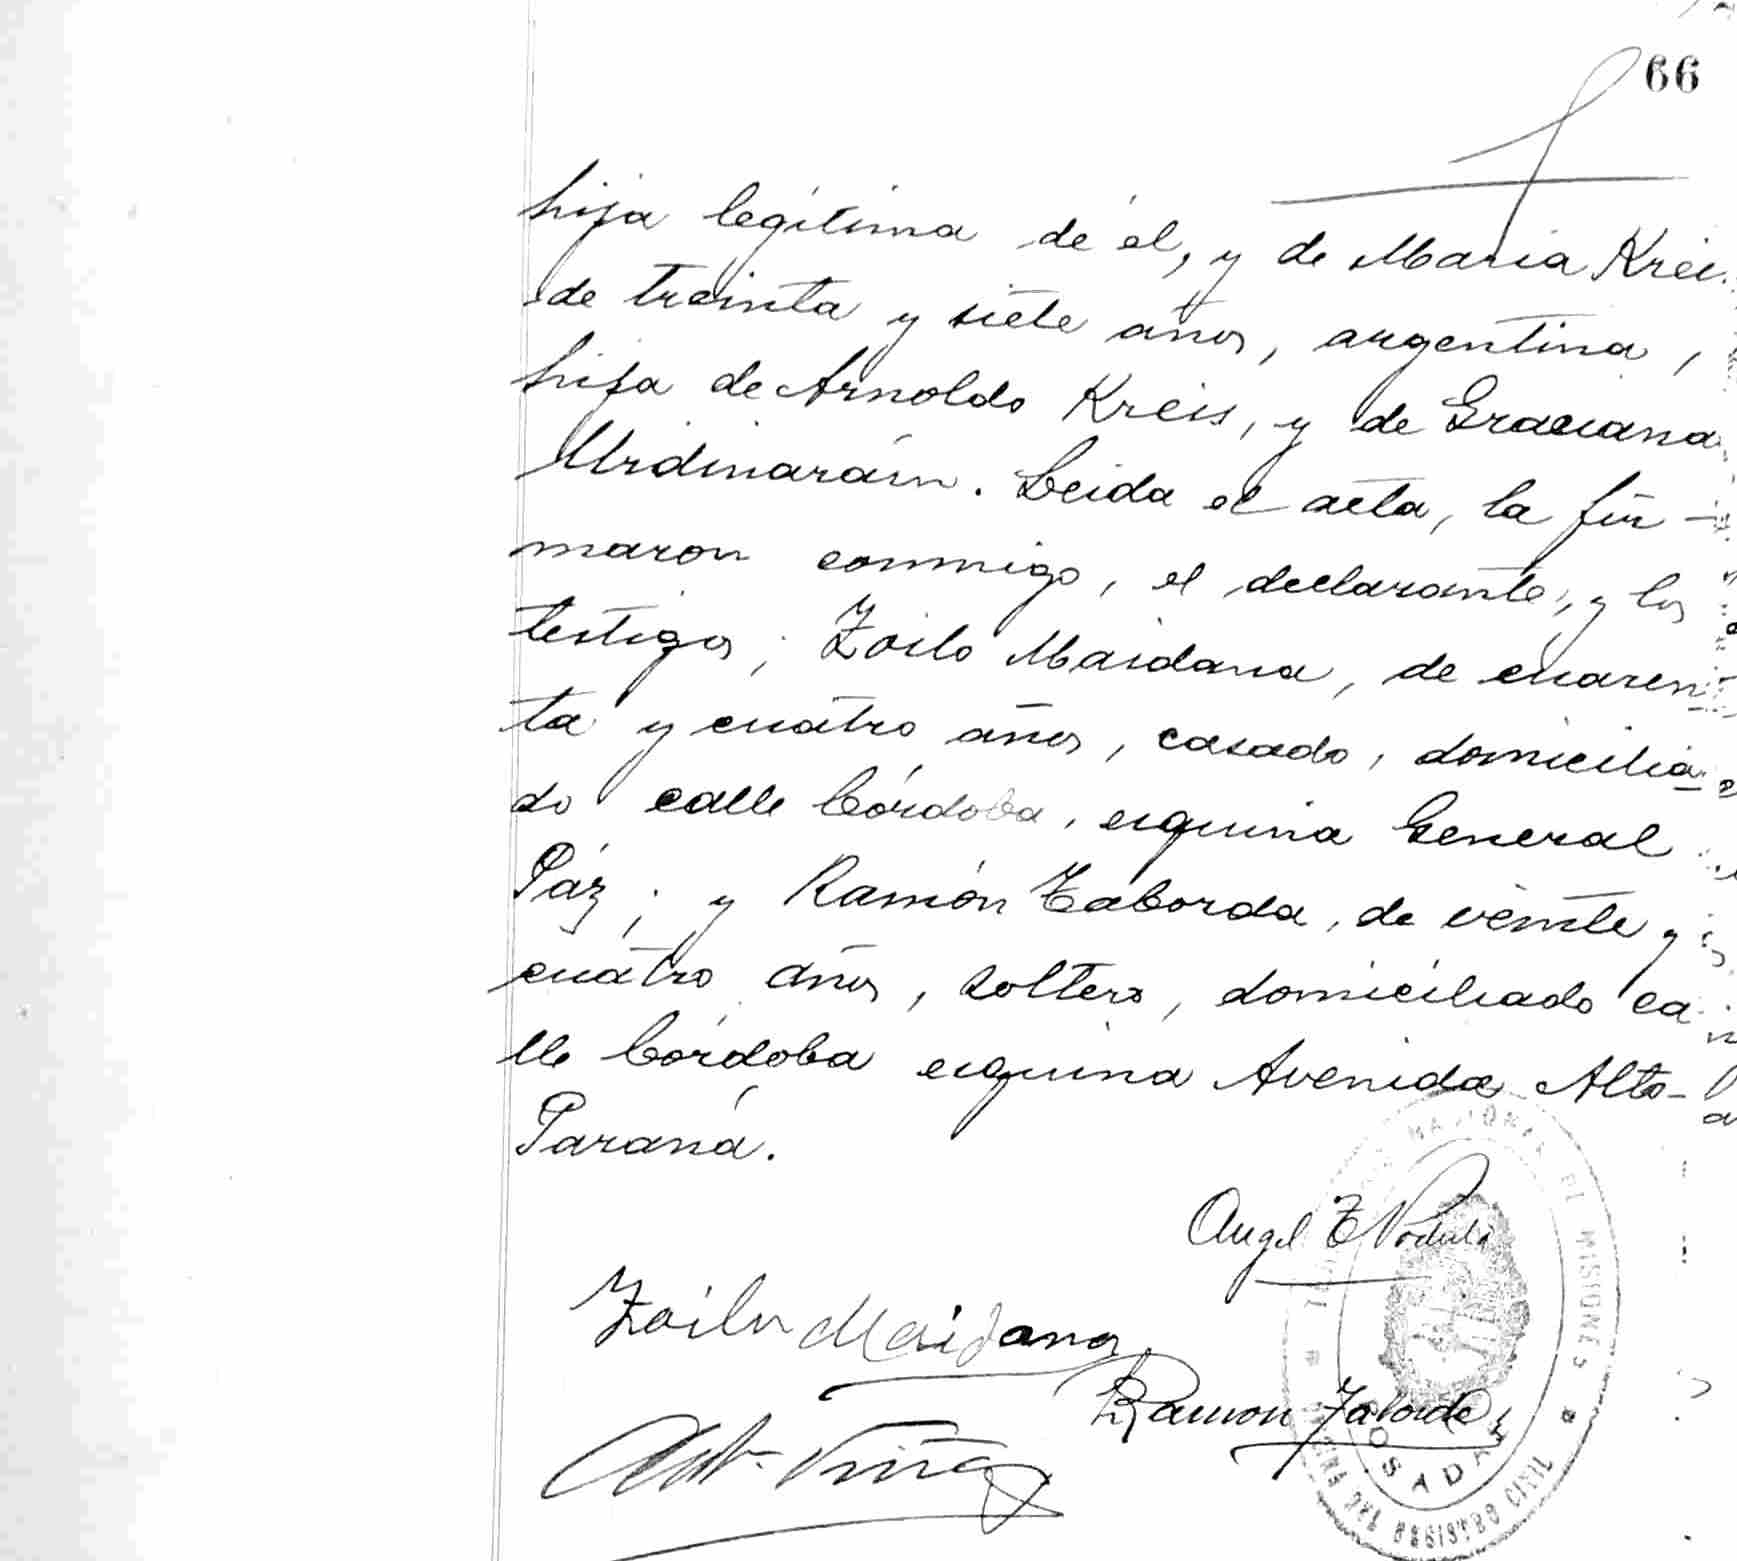 66
hija legítima de él, y de Maria Kreis
de treinta y siete años, argentina,
hija de Arnoldo Kreis, y de Graciana
Urdinaráin. Leida el acta, la fir-
maron conmigo, el declarante, y los
testigos; Zoilo Maidana, de cuaren-
ta y cuatro años, casado, domicilia-
do calle Córdoba, esquina General
Páz; y Ramón Taborda, de veinte y
cuatro años, soltero, domiciliado ca-
lle Córdoba esquina Avenida Alto-
Paraná.
Angel T
Zoilo Maidana
Ramon Taborda
NACIONAL DE MISIONES
POSADAS
OFICINA DEL REGISTRO CIVIL